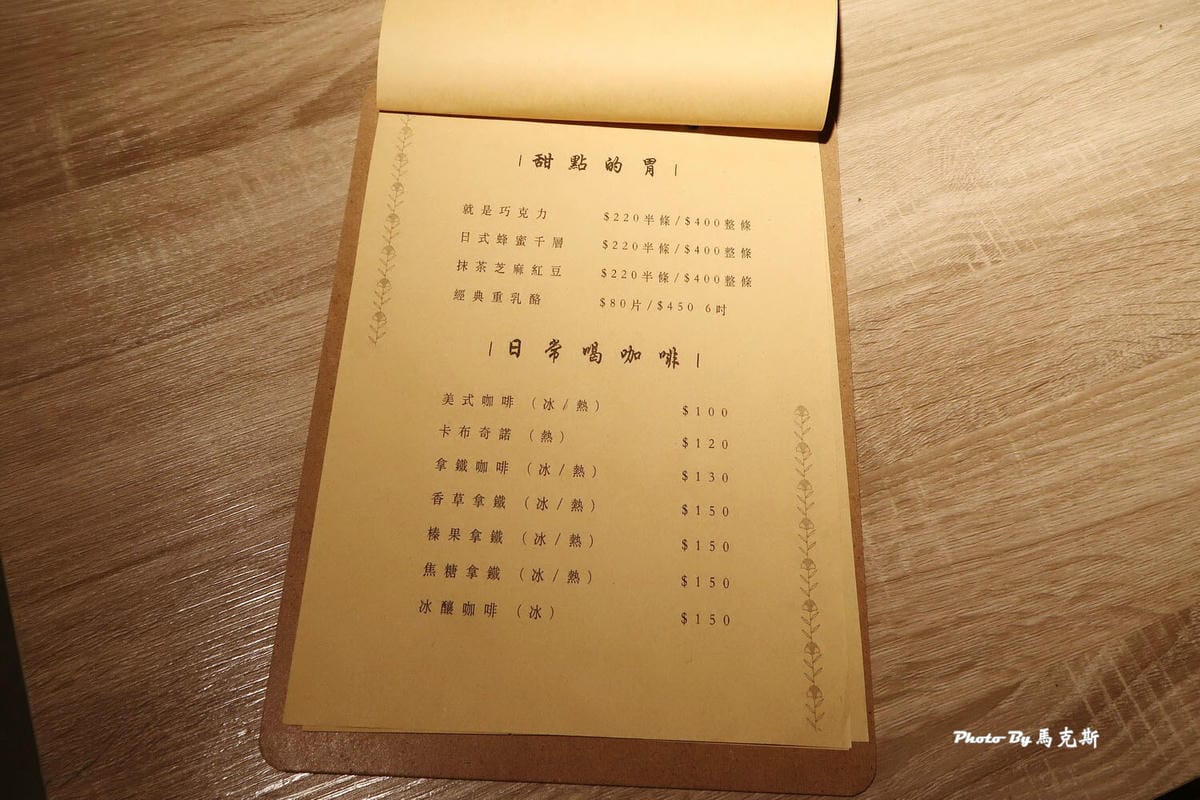 |甜點的胃|
就是巧克力 $220半條/$400整條
日式蜂蜜千層 $220半條/$400整條
抹茶芝麻紅豆 $220半條/$400整條
經典重乳酪 $80片/$450 6吋
|日常喝咖啡|
美式咖啡（冰/熱） $100
卡布奇諾（熱） $120
拿鐵咖啡（冰/熱） $130
香草拿鐵（冰/熱） $150
榛果拿鐵（冰/熱） $150
焦糖拿鐵（冰/熱） $150
冰釀咖啡（冰） $150
Photo By 馬克斯